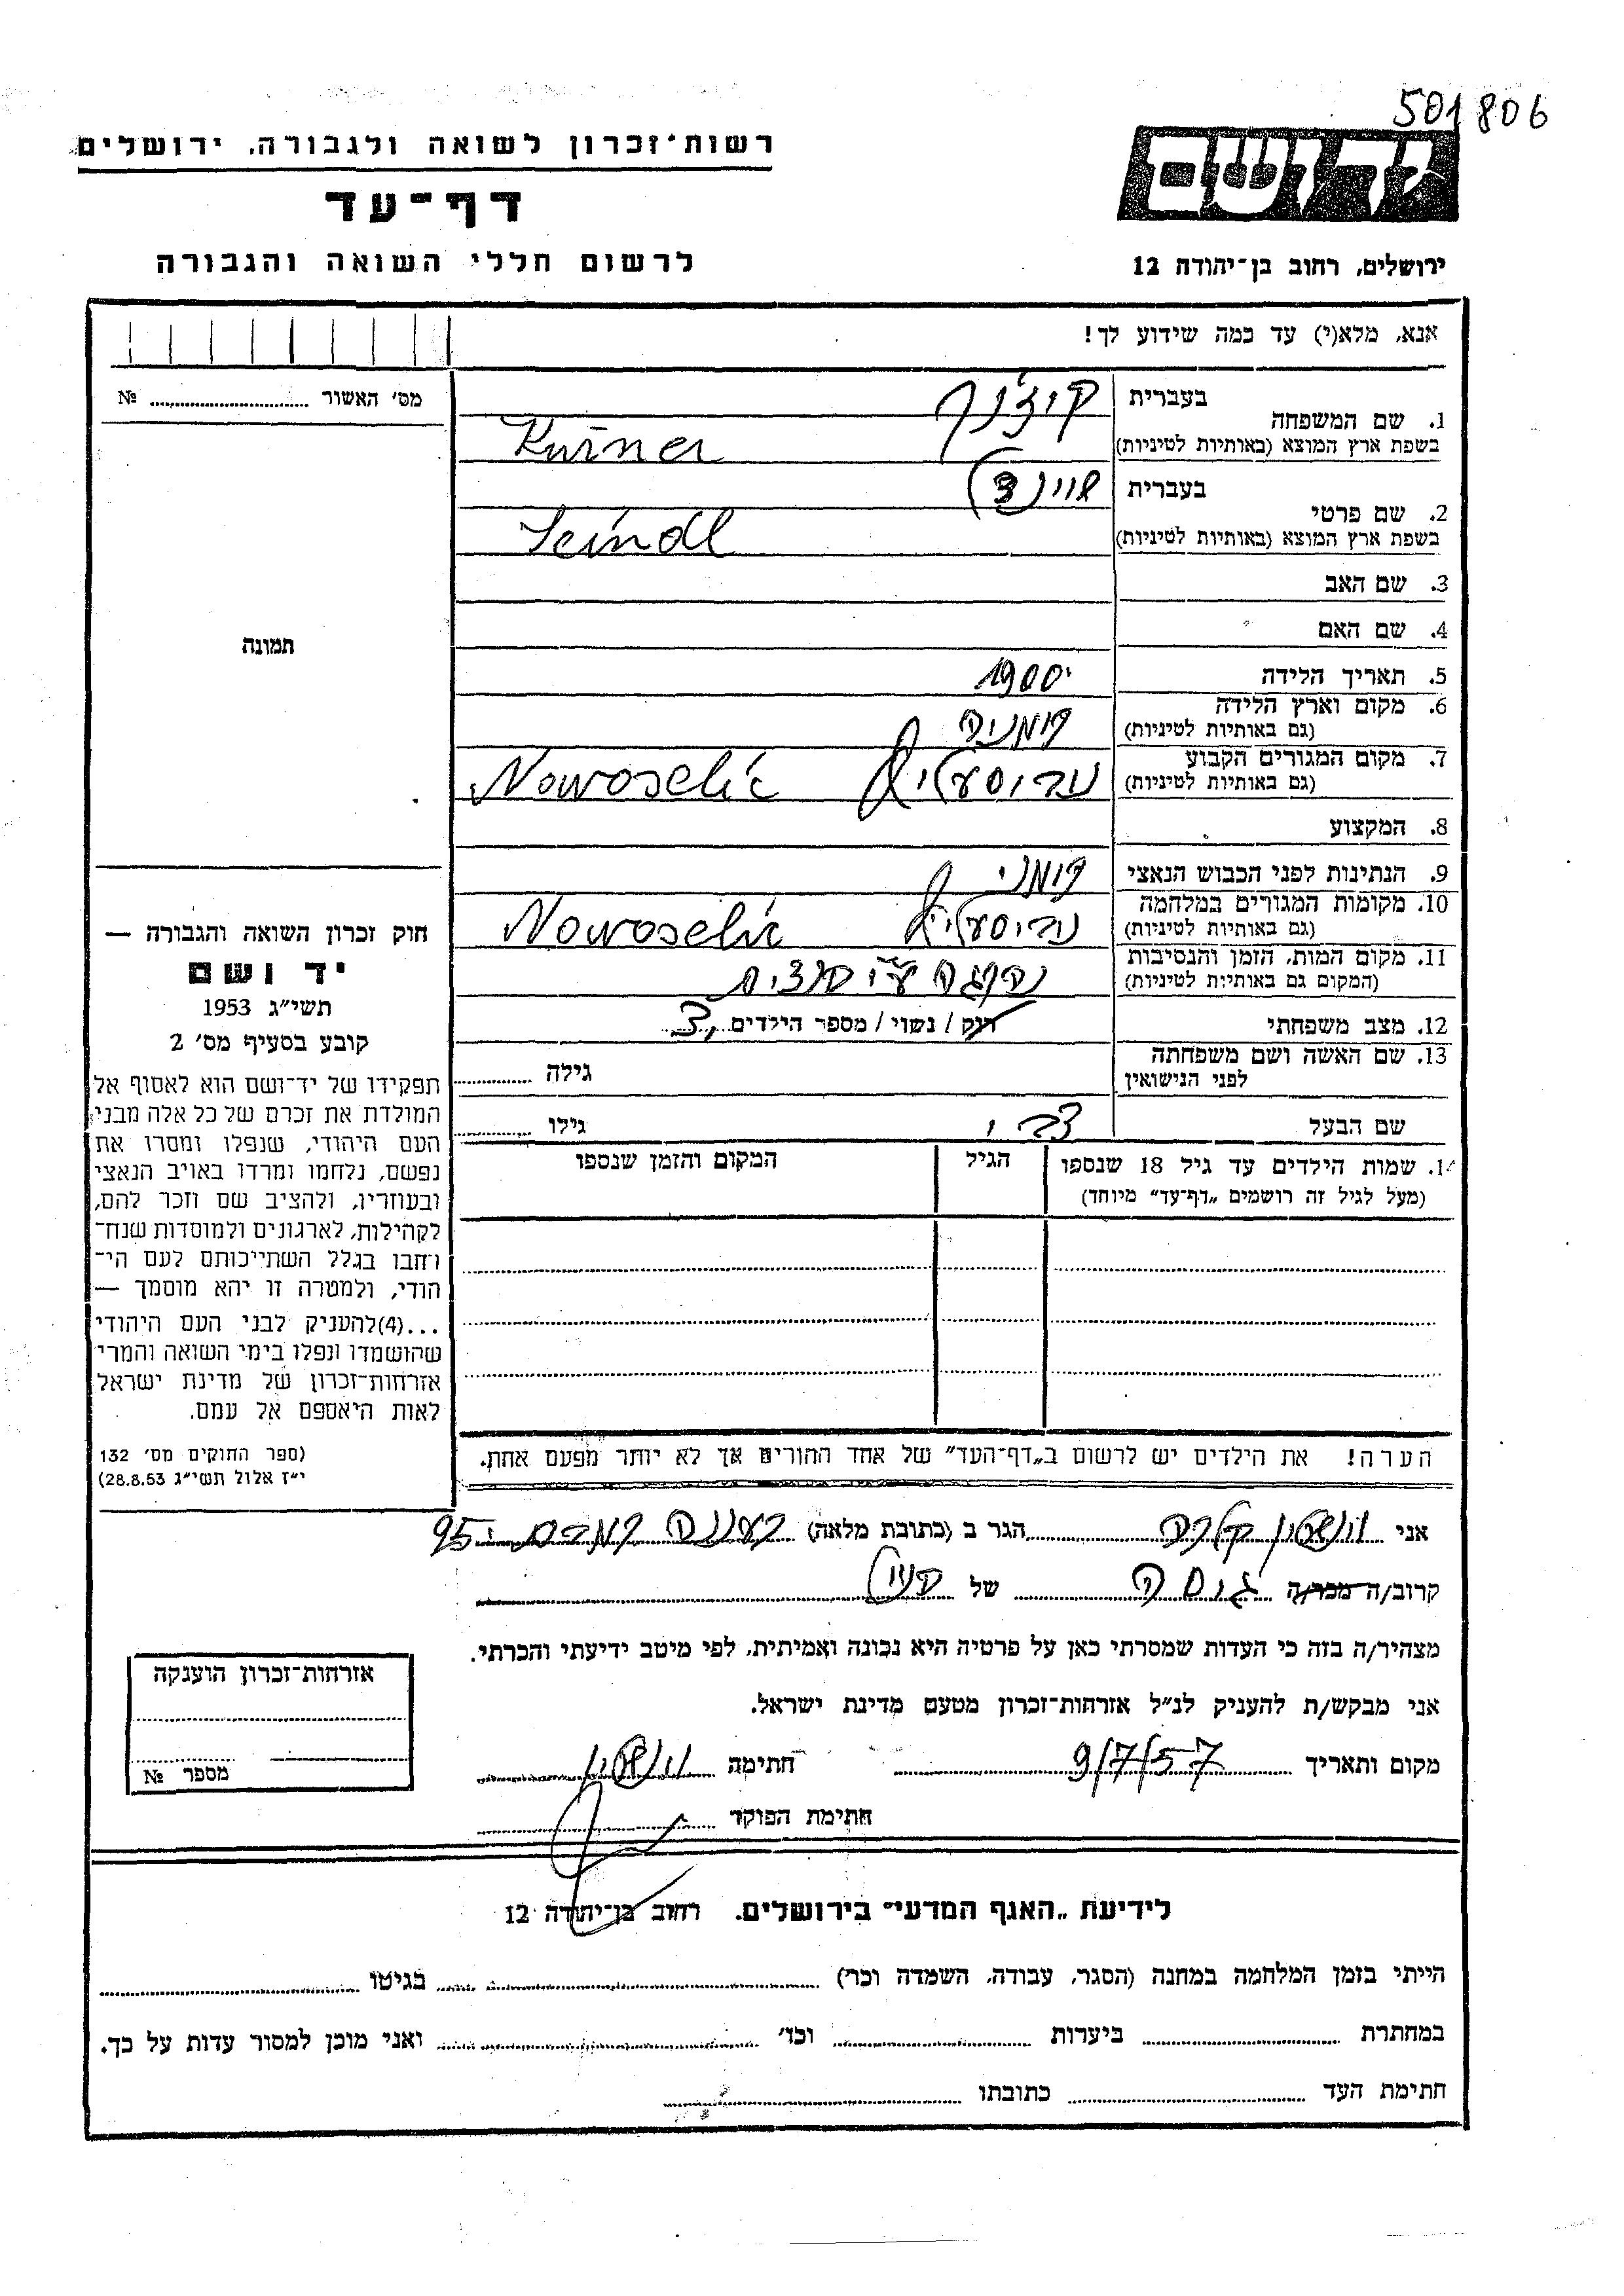 501806
רשות־זכרון לשואה ולגבורה, ירושלים
יד ושם
דף־עד
לרשום חללי השואה והגבורה
ירושלים, רחוב בן־יהודה 12
אנא, מלא(י) עד כמה שידוע לך!
מס' האשור № 
1. שם המשפחה
בעברית
בשפת ארץ המוצא (באותיות לטיניות)
2. שם פרטי
בעברית
בשפת ארץ המוצא (באותיות לטיניות)
3. שם האב
4. שם האם
תמונה
5. תאריך הלידה 1900
6. מקום וארץ הלידה רומניה
(גם באותיות לטיניות)
7. מקום המגורים הקבוע Nowoselic
(גם באותיות לטיניות)
8. המקצוע
9. הנתינות לפני הכבוש הנאצי רומני
10. מקומות המגורים במלחמה Nowoselic
(גם באותיות לטיניות)
11. מקום המות, הזמן והנסיבות
(המקום גם באותיות לטיניות)
12. מצב משפחתי רוק / נשוי / מספר הילדים 3
13. שם האשה ושם משפחתה
לפני הנישואין
גילה
שם הבעל
גילו
14. שמות הילדים עד גיל 18 שנספו
(מעל לגיל זה רושמים „דף־עד" מיוחד)
הגיל
המקום והזמן שנספו
הערה! את הילדים יש לרשום ב„דף־העד" של אחד ההורים אך לא יותר מפעם אחת.
חוק זכרון השואה והגבורה —
יד ושם
תשי"ג 1953
קובע בסעיף מס' 2
תפקידו של יד־ושם הוא לאסוף אל
המולדת את זכרם של כל אלה מבני
העם היהודי, שנפלו ומסרו את
נפשם, נלחמו ומרדו באויב הנאצי
ובעוזריו, ולהציב שם וזכר להם,
לקהילות, לארגונים ולמוסדות שנח־
רחבו בגלל השתייכותם לעם הי־
הודי, ולמטרה זו יהא מוסמך —
...(4)להעניק לבני העם היהודי
שהושמדו ונפלו בימי השואה והמרי
אזרחות־זכרון של מדינת ישראל
לאות היאספם אל עמם.
(ספר החוקים מס' 132
י"ז אלול תשי"ג 28.8.53)
אני הגר ב (כתובת מלאה) רעננה 95
קרוב/ה מכר/ה של
מצהיר/ה בזה כי העדות שמסרתי כאן על פרטיה היא נכונה ואמיתית, לפי מיטב ידיעתי והכרתי.
אני מבקש/ת להעניק לנ"ל אזרחות־זכרון מטעם מדינת ישראל.
מקום ותאריך 9/7/57 חתימה
חתימת הפוקד
אזרחות־זכרון הוענקה
מספר №
לידיעת „האגף המדעי" בירושלים. רחוב בן־יהודה 12
הייתי בזמן המלחמה במחנה (הסגר, עבודה, השמדה וכר') בגיטו
במחתרת ביערות וכד' ואני מוכן למסור עדות על כך.
חתימת העד כתובתו